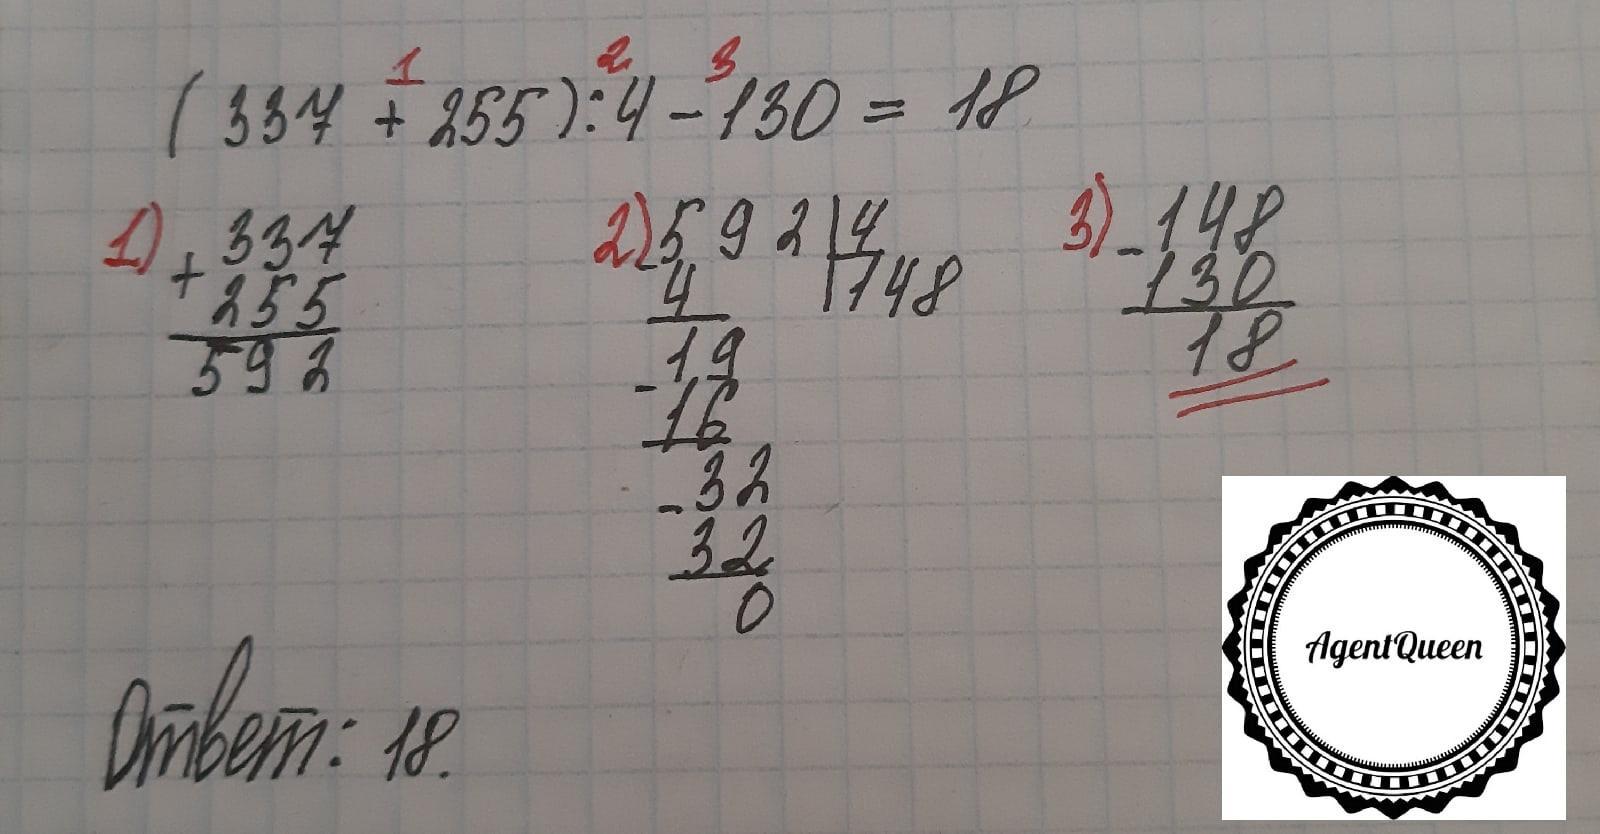 1 2 3
(337 + 255) : 4 - 130 = 18
1) + 337
255
592
2) - 592 | 4
4 | 148
- 19
16
- 32
32
0
3) - 148
130
18
Ответ: 18.
AgentQueen